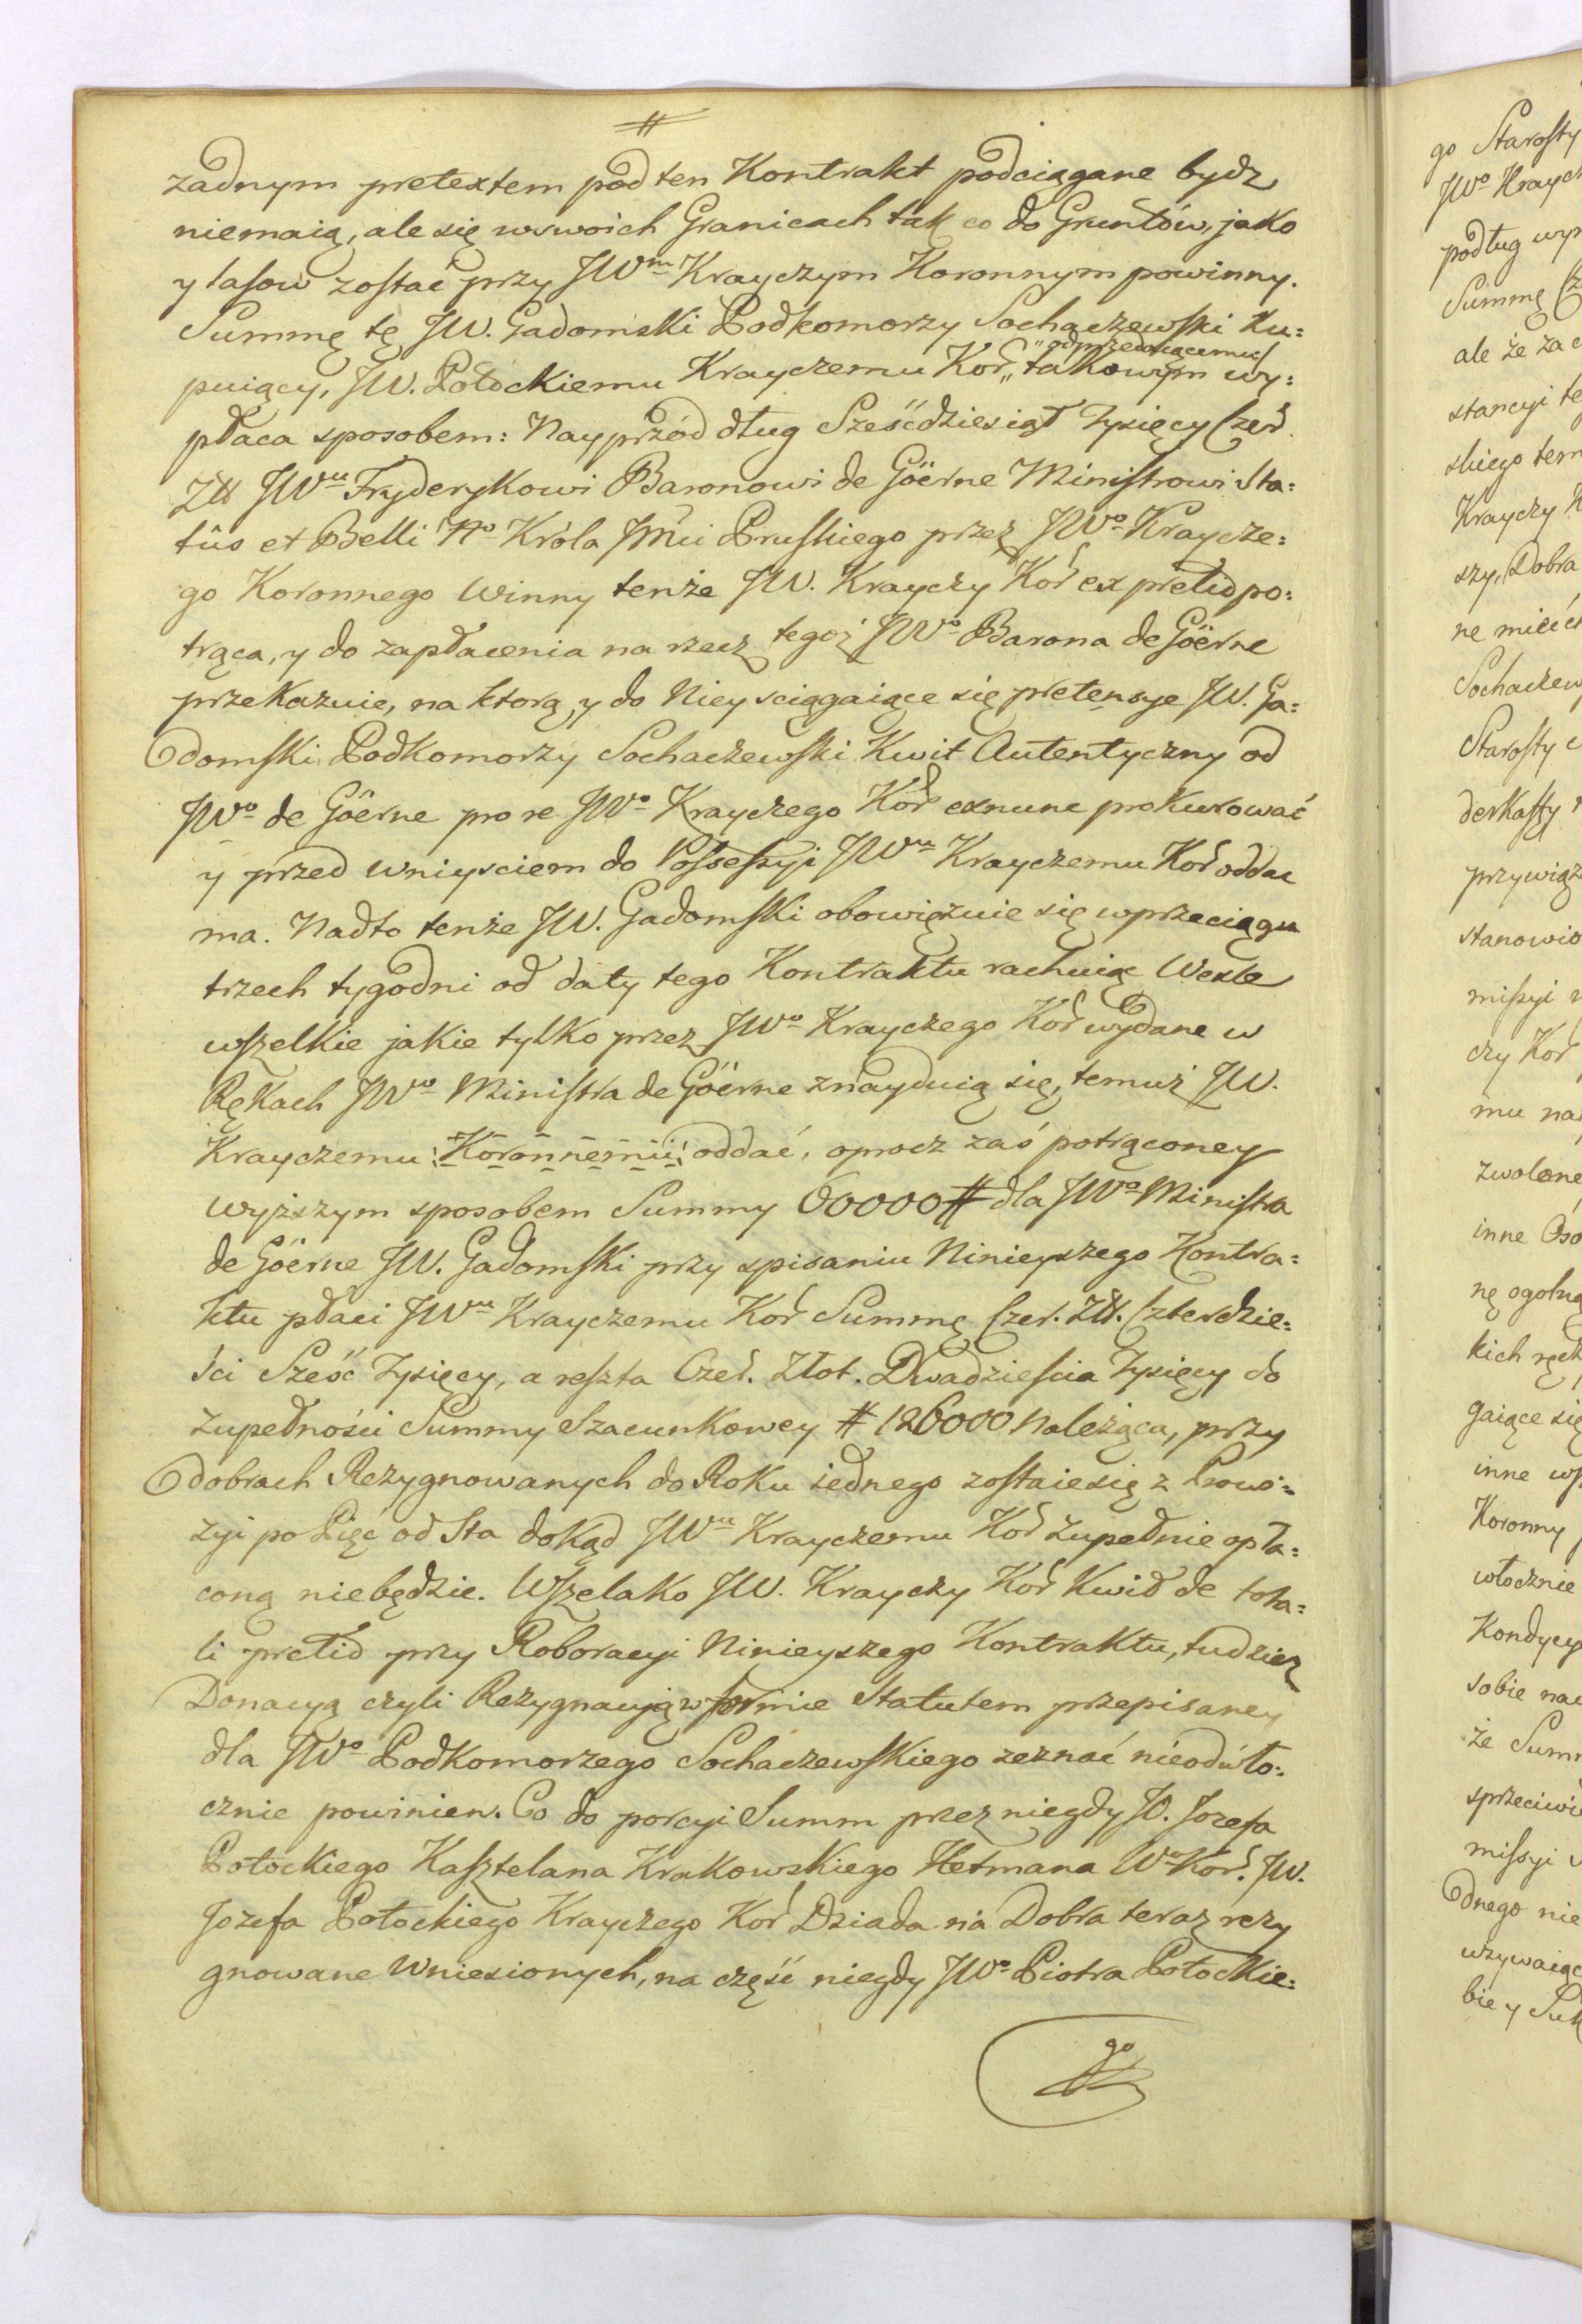 #
zadnym pretextem pod ten Kontrakt podciągane bydz
niemaią, ale się wswoich Granicach tak co do Gruntów, jako
y lasow zostać przy JWm Krayczym Koronnym powinny.
Summę tę JW. Gadomski Podkomorzy Sochaczewski Ku=
„odprzedaiącemu
puiący, JW. Potockiemu Krayczemu Kor „ takowym wy=
płaca sposobem: Nayprzód dług Sześćdziesiąt Tysięcy Czer.
Złł JWu Fryderykowi Baronowi de Göerne Ministrowi Sta=
tûs et Belli No Króla Jmci Pruskiego przez JWo Kraycze=
go Koronnego Winny tenże JW. Krayczy Kor ex pretio po=
trąca, y do zapłacenia na rzecz tegoż JWo Barona de Göerne
przekazuie, na ktorą, y do Niey sciągaiące się pretensye JW. Ga=
domski Podkomorzy Sochaczewski Kwit Autentyczny od
JWo de Göerne pro re JWo Krayczego Kor exnunc prokurować
y przed wniysciem do Possessyi JWu Krayczemu Kor oddac
ma. Nadto tenże JW. Gadomski obowięzuie się wprzeciągu
trzech tygodni od daty tego Kontraktu rachuiąc Wexle
wszelkie jakie tylko przez JWo Krayczego Kor wydane w
Rękach JWo Ministra de Göerne znayduią się, temuż JW.
Krayczemu Koronnemu oddać, oprocz zaś potrąconey
wyższym sposobem Summy 60000 # dla JWo Ministra
de Göerne JW. Gadomski przy spisaniu Ninieyszego Kontra=
ktu płaci JWu Krayczemu Kor Summę Czer. Złł. Czterdzie=
ści Sześć Tysięcy, a reszta Czer. Złot. Dwadziescia Tysięcy do
zupełności Summy Szacunkowey # 126000 Należąca, przy
dobrach Rezygnowanych do Roku iednego zostaie się z Prowi=
zyi po Pięć od Sta dokąd JWu Krayczemu Kor zupełnie opła=
coną niebędzie. Wszelako JW. Krayczy Kor Kwit de tota=
li pretio przy Roboracyi Ninieyszego Kontraktu, tudziez
Donacyą czyli Rezygnacyią w formie Statutem przepisaney
dla JWo Podkomorzego Sochaczewskiego zeznać nieodwło=
cznie powinien. Co do porcyi Summ przez niegdy JO. Jozefa
Potockiego Kasztelana Krakowskiego Hetmana Wo Kor. JW.
Jozefa Potockiego Krayczego Kor Dziada na Dobra teraz rezy
gnowane Wniesionych, na część niegdy JWo Piotra Potockie=
go
go Starosty
JWo Krayc
podług wy
Summę
ale że za
stancyi te
skiego tem
Krayczy K
szy, Dobra
ne mieć
Sochaczew
Starosty
przywiąz
stanowio
missyi
czy Kor
mu na
zwolone
inne Oso
nę ogolną
kich
gaiące się
inne ws
Koronny
włocznie
Kondycy
sobie na
że Sum
sprzeciwi
missyi
dnego nie
uzywaiąc
bie y Suk